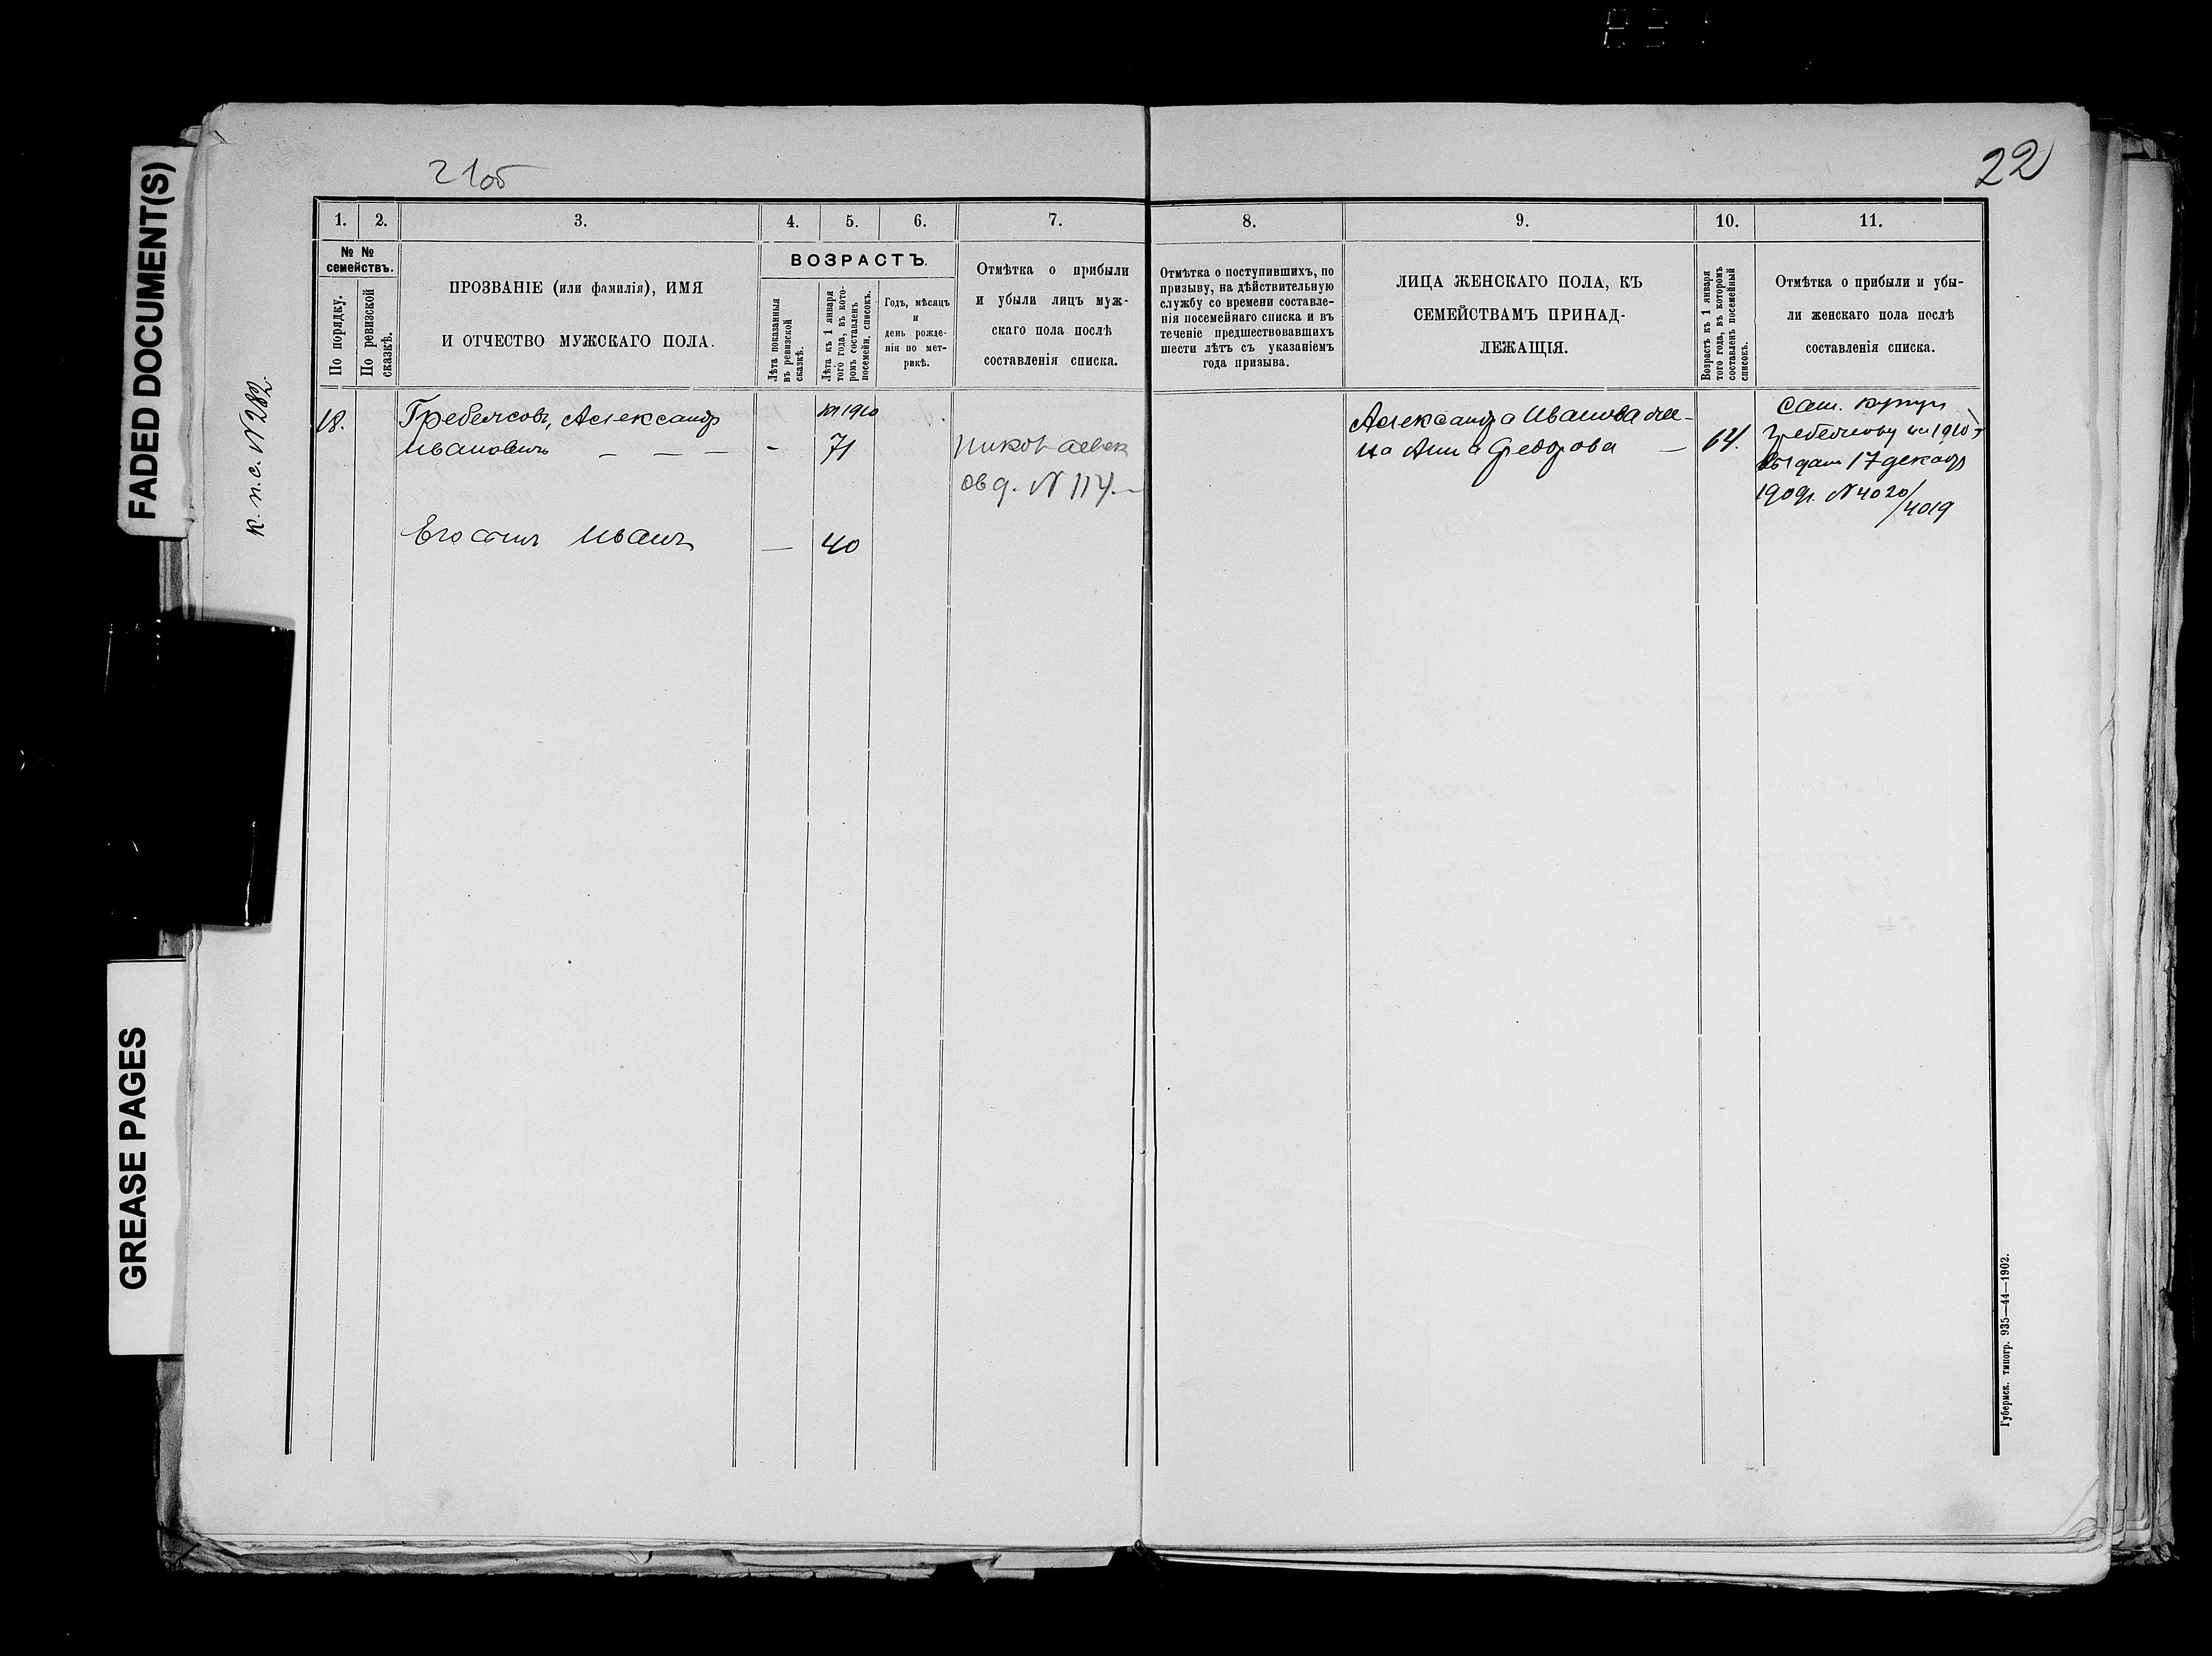 FADED DOCUMENT(S)
GREASE PAGES
21об
22
к. п. с. N 282.
1.
2.
3.
4.
5.
6.
7.
8.
9.
10.
11.
№ №
семействъ.
По порядку.
По ревизской
сказкѣ.
ПРОЗВАНІЕ (или фамилія), ИМЯ
И ОТЧЕСТВО МУЖСКАГО ПОЛА.
ВОЗРАСТЪ.
Лѣта показанныя
въ ревизской
сказкѣ.
Лѣта къ 1 января
того года, въ кото-
ромъ составленъ
посемейн. списокъ.
Годъ, мѣсяцъ
и
день рожде-
нія по мет-
рикѣ.
Отмѣтка о прибыли
и убыли лицъ муж-
скаго пола послѣ
составленія списка.
Отмѣтка о поступившихъ, по
призыву, на дѣйствительную
службу со времени составле-
нія посемейнаго списка и въ
теченіе предшествовавшихъ
шести лѣтъ съ указаніемъ
года призыва.
ЛИЦА ЖЕНСКАГО ПОЛА, КЪ
СЕМЕЙСТВАМЪ ПРИНАД-
ЛЕЖАЩІЯ.
Возрастъ къ 1 января
того года, въ которомъ
составленъ посемейный
списокъ.
Отмѣтка о прибыли и убы-
ли женскаго пола послѣ
составленія списка.
18.
Гребенсовъ, Александръ
Ивановичъ — — —
-
на 1910
71
Николаевск
N 114.—
Александра Иванова же-
на Анна Федорова —
64.
Сам. купцу
на 1910 г
Выдан 17 декабр
1909г. N 4020/
/4019
Его сынъ Иванъ
—
40
Губернск. типогр. 935—44—1902.